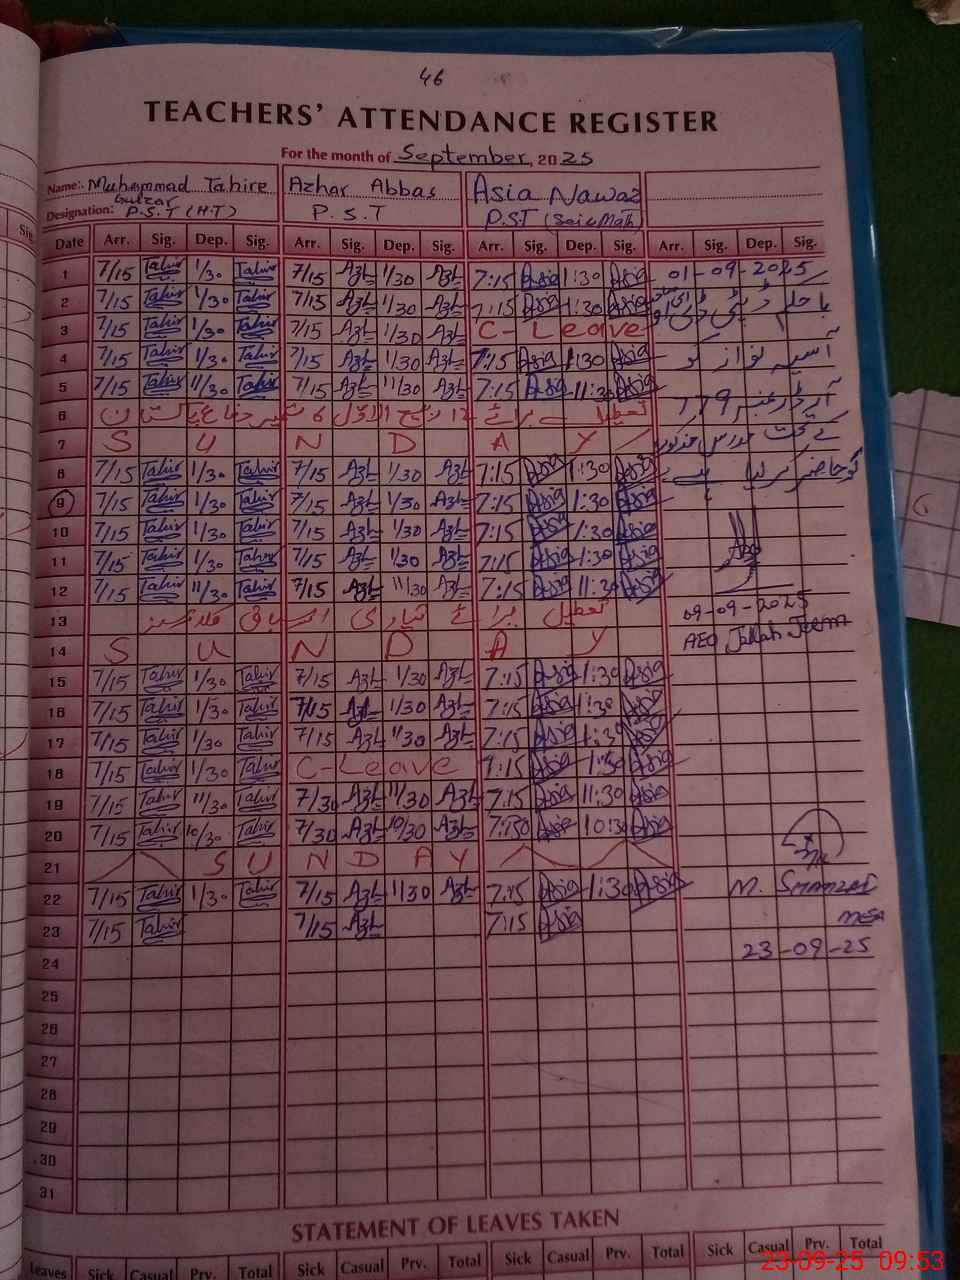 46
TEACHERS' ATTENDANCE REGISTER
For the month of September, 2025
Name:. Muhammad Tahire Gulzar Azhar Abbas Asia Nawaz
Designation: P.S.T (H.T) P.S.T P.S.T (Sci & Math)
Date Arr. Sig. Dep. Sig. Arr. Sig. Dep. Sig. Arr. Sig. Dep. Sig. Arr. Sig. Dep. Sig.
1 7/15 Tahir 1/30 Tahir 7/15 Azh 1/30 Azh 7:15 Asia 1:30 Asia 01-09-2025
2 7/15 Tahir 1/30 Tahir 7/15 Azh 1/30 Azh 7:15 Asia 1:30 Asia
3 7/15 Tahir 1/30 Tahir 7/15 Azh 1/30 Azh C-Leave
4 7/15 Tahir 1/30 Tahir 7/15 Azh 1/30 Azh 7:15 Asia 1:30 Asia آسیہ نواز کو
5 7/15 Tahir 11/30 Tahir 7/15 Azh 11/30 Azh 7:15 Asia 11:30 Asia آرڈر نمبر 779
6 تعطیل برائے 12 ربیع الاول 6 ستمبر دفاع پاکستان
7 S U N D A Y کے تحت
8 7/15 Tahir 1/30 Tahir 7/15 Azh 1/30 Azh 7:15 Asia 1:30 Asia کو حاضر کر لیا ہے
9 7/15 Tahir 1/30 Tahir 7/15 Azh 1/30 Azh 7:15 Asia 1:30 Asia
10 7/15 Tahir 1/30 Tahir 7/15 Azh 1/30 Azh 7:15 Asia 1:30 Asia
11 7/15 Tahir 1/30 Tahir 7/15 Azh 1/30 Azh 7:15 Asia 1:30 Asia
12 7/15 Tahir 11/30 Tahir 7/15 Azh 11/30 Azh 7:15 Asia 11:30 Asia
13 تعطیل برائے تیاری اسباق 09-09-2025
14 S U N D A Y AEO Jallah Jeem
15 7/15 Tahir 1/30 Tahir 7/15 Azh 1/30 Azh 7:15 Asia 1:30 Asia
16 7/15 Tahir 1/30 Tahir 7/15 Azh 1/30 Azh 7:15 Asia 1:30 Asia
17 7/15 Tahir 1/30 Tahir 7/15 Azh 1/30 Azh 7:15 Asia 1:30 Asia
18 7/15 Tahir 1/30 Tahir C-Leave 7:15 Asia 1:30 Asia
19 7/15 Tahir 11/30 Tahir 7/30 Azh 11/30 Azh 7:15 Asia 11:30 Asia
20 7/15 Tahir 10/30 Tahir 7/30 Azh 10/30 Azh 7:150 Asia 10:30 Asia
21 S U N D A Y
22 7/15 Tahir 1/30 Tahir 7/15 Azh 1/30 Azh 7:15 Asia 1:30 Asia M.
23 7/15 Tahir 7/15 Azh 7:15 Asia
24 23-09-25
25
26
27
28
29
30
31
STATEMENT OF LEAVES TAKEN
Leaves Sick Casual Prv. Total Sick Casual Prv. Total Sick Casual Prv. Total Sick Casual Prv. Total
23-09-25 09:53